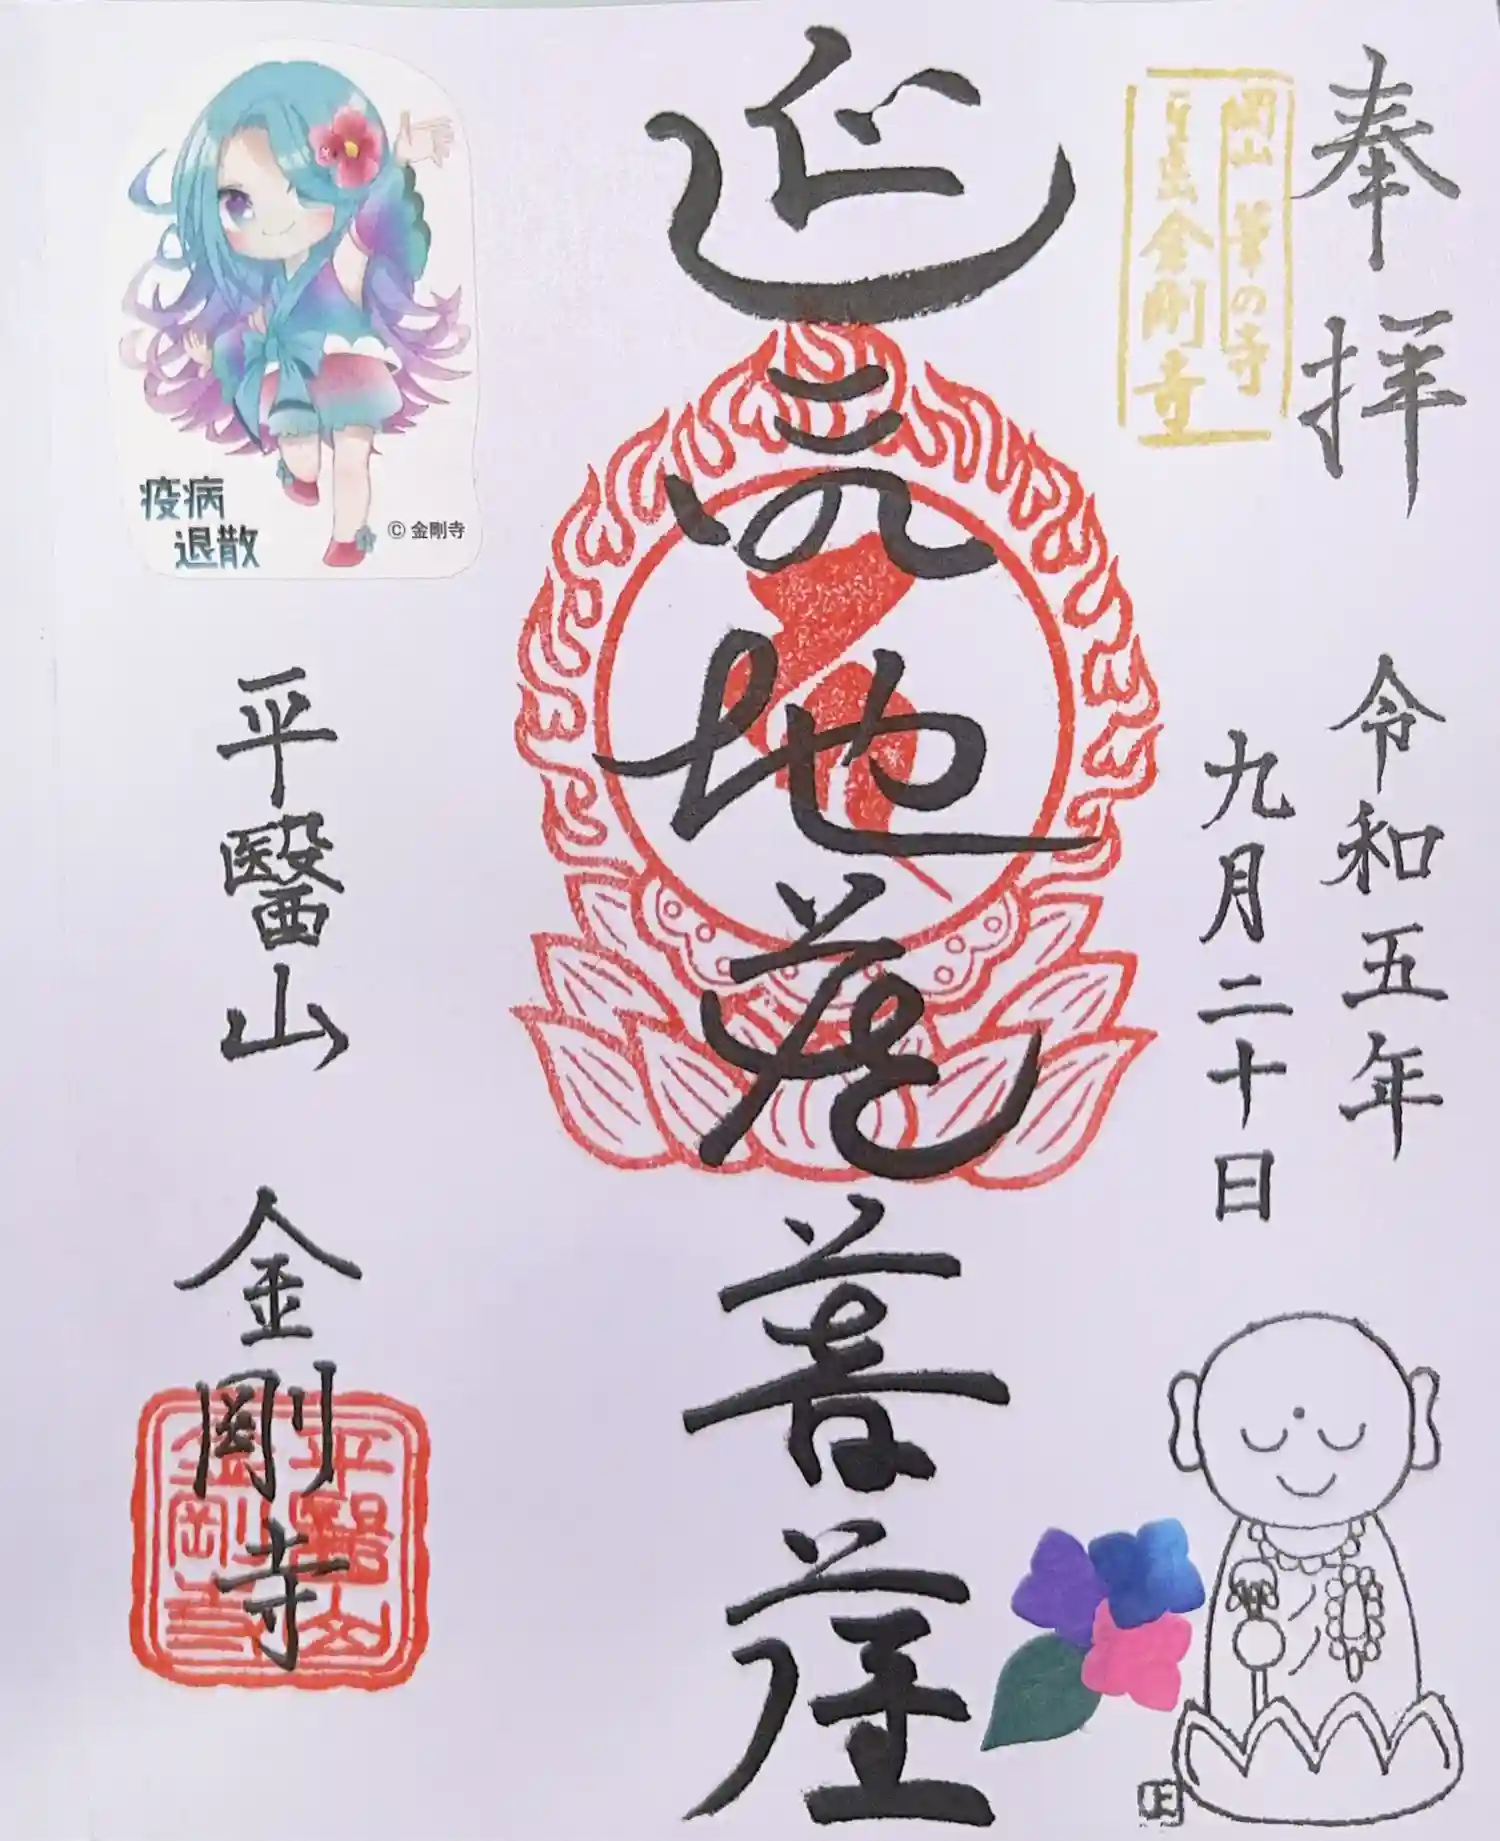 奉拝
岡山 筆の寺
金剛寺
令和五年
九月二十日
延命地蔵菩薩
疫病
退散
© 金剛寺
平醫山 金剛寺
平醫山
金剛寺